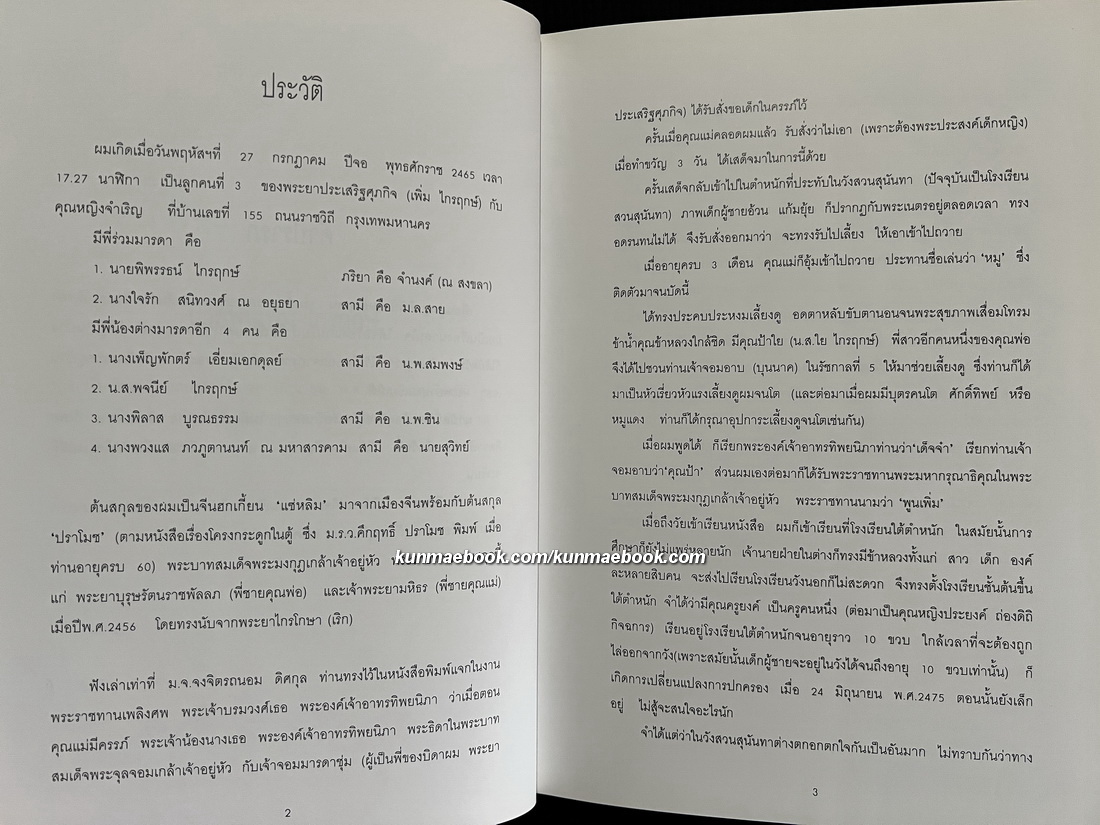 ประวัติ
ผมเกิดเมื่อวันพฤหัสฯที่ 27 กรกฎาคม ปีจอ พุทธศักราช 2465 เวลา
17.27 นาฬิกา เป็นลูกคนที่ 3 ของพระยาประเสริฐศุภกิจ (เพิ่ม ไกรฤกษ์) กับ
คุณหญิงจำเริญ ที่บ้านเลขที่ 155 ถนนราชวิถี กรุงเทพมหานคร
มีพี่ร่วมมารดา คือ
1. นายพิพรรธน์ ไกรฤกษ์ ภริยา คือ จำนงค์ (ณ สงขลา)
2. นางใจรัก สนิทวงศ์ ณ อยุธยา สามี คือ ม.ล.สาย
มีพี่น้องต่างมารดาอีก 4 คน คือ
1. นางเพ็ญพักตร์ เอี่ยมเอกดุลย์ สามี คือ น.พ.สมพงษ์
2. น.ส.พจนีย์ ไกรฤกษ์
3. นางพิลาส บูรณธรรม สามี คือ น.พ.ชิน
4. นางพวงแส ภวภูตานนท์ ณ มหาสารคาม สามี คือ นายสุวิทย์
ต้นสกุลของผมเป็นจีนฮกเกี้ยน 'แซ่หลิม' มาจากเมืองจีนพร้อมกับต้นสกุล
'ปราโมช' (ตามหนังสือเรื่องโครงกระดูกในตู้ ซึ่ง ม.ร.ว.คึกฤทธิ์ ปราโมช พิมพ์ เมื่อ
ท่านอายุครบ 60) พระบาทสมเด็จพระมงกุฎเกล้าเจ้าอยู่หัว
แก่ พระยาบุรุษรัตนราชพัลลภ (พี่ชายคุณพ่อ) และเจ้าพระยามหิธร (พี่ชายคุณแม่)
เมื่อปีพ.ศ.2456 โดยทรงนับจากพระยาไกรโกษา (เริก)
ฟังเล่าเท่าที่ ม.จ.จงจิตรถนอม ดิศกุล ท่านทรงไว้ในหนังสือพิมพ์แจกในงาน
พระราชทานเพลิงศพ พระเจ้าบรมวงศ์เธอ พระองค์เจ้าอาทรทิพยนิภา ว่าเมื่อตอน
คุณแม่มีครรภ์ พระเจ้าน้องนางเธอ พระองค์เจ้าอาทรทิพยนิภา พระธิดาในพระบาท
สมเด็จพระจุลจอมเกล้าเจ้าอยู่หัว กับเจ้าจอมมารดาชุ่ม (ผู้เป็นพี่ของบิดาผม พระยา
2
ประเสริฐศุภกิจ) ได้รับสั่งขอเด็กในครรภ์ไว้
ครั้นเมื่อคุณแม่คลอดผมแล้ว รับสั่งว่าไม่เอา (เพราะต้องพระประสงค์เด็กหญิง)
เมื่อทำขวัญ 3 วัน ได้เสด็จมาในการนี้ด้วย
ครั้นเสด็จกลับเข้าไปในตำหนักที่ประทับในวังสวนสุนันทา (ปัจจุบันเป็นโรงเรียน
สวนสุนันทา) ภาพเด็กผู้ชายอ้วน แก้มยุ้ย ก็ปรากฏกับพระเนตรอยู่ตลอดเวลา ทรง
อดรนทนไม่ได้ จึงรับสั่งออกมาว่า จะทรงรับไปเลี้ยง ให้เอาเข้าไปถวาย
เมื่ออายุครบ 3 เดือน คุณแม่ก็อุ้มเข้าไปถวาย ประทานชื่อเล่นว่า 'หมู' ซึ่ง
ติดตัวมาจนบัดนี้
ได้ทรงประคบประหงมเลี้ยงดู อดตาหลับขับตานอนจนพระสุขภาพเสื่อมโทรม
ข้าน้ำคุณข้าหลวงใกล้ชิด มีคุณป้าใย (น.ส.ใย ไกรฤกษ์) พี่สาวอีกคนหนึ่งของคุณพ่อ
จึงได้ไปชวนท่านเจ้าจอมอาบ (บุนนาค) ในรัชกาลที่ 5 ให้มาช่วยเลี้ยงดู ซึ่งท่านก็ได้
มาเป็นหัวเรี่ยวหัวแรงเลี้ยงดูผมจนโต (และต่อมาเมื่อผมมีบุตรคนโต ศักดิ์ทิพย์ หรือ
หมูแดง ท่านก็ได้กรุณาอุปการะเลี้ยงดูจนโตเช่นกัน)
เมื่อผมพูดได้ ก็เรียกพระองค์เจ้าอาทรทิพยนิภาท่านว่า'เด็จจ๋า' เรียกท่านเจ้า
จอมอาบว่า'คุณป้า' ส่วนผมเองต่อมาก็ได้รับพระราชทานพระมหากรุณาธิคุณในพระ
บาทสมเด็จพระมงกุฎเกล้าเจ้าอยู่หัว พระราชทานนามว่า 'พูนเพิ่ม'
เมื่อถึงวัยเข้าเรียนหนังสือ ผมก็เข้าเรียนที่โรงเรียนใต้ตำหนัก ในสมัยนั้นการ
ศึกษาก็ยังไม่แพร่หลายนัก เจ้านายฝ่ายในต่างก็ทรงมีข้าหลวงทั้งแก่ สาว เด็ก องค์
kunmaebook.com/kunmaebook.com
ละหลายสิบคน จะส่งไปเรียนโรงเรียนวังนอกก็ไม่สะดวก จึงทรงตั้งโรงเรียนชั้นต้นขึ้น
ใต้ตำหนัก จำได้ว่ามีคุณครูยงค์ เป็นครูคนหนึ่ง (ต่อมาเป็นคุณหญิงประยงค์ ถ่องดิถี
กิจฉการ) เรียนอยู่โรงเรียนใต้ตำหนักจนอายุราว 10 ขวบ ใกล้เวลาที่จะต้องถูก
ไล่ออกจากวัง(เพราะสมัยนั้นเด็กผู้ชายจะอยู่ในวังได้จนถึงอายุ 10 ขวบเท่านั้น) ก็
เกิดการเปลี่ยนแปลงการปกครอง เมื่อ 24 มิถุนายน พ.ศ.2475 ตอนนั้นยังเล็ก
อยู่ ไม่สู้จะสนใจอะไรนัก
จำได้แต่ว่าในวังสวนสุนันทาต่างตกอกตกใจกันเป็นอันมาก ไม่ทราบกันว่าทาง
3